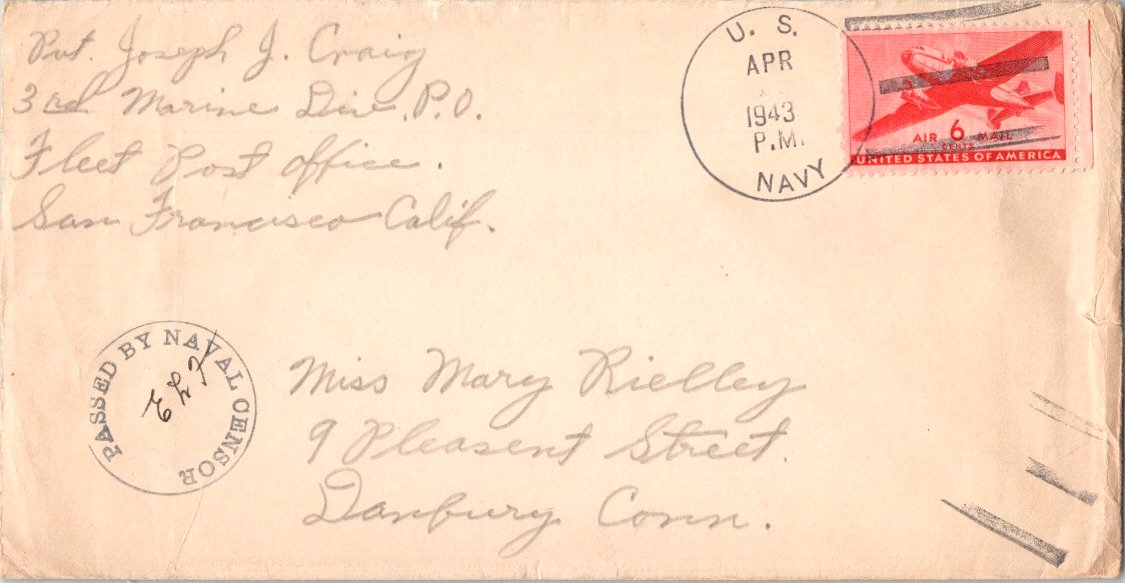 Pvt. Joseph J. Craig
3rd Marine Div. P.O.
Fleet Post Office.
San Francisco Calif.
U. S.
APR
1943
P.M.
NAVY
AIR 6 MAIL
CENTS
UNITED STATES OF AMERICA
PASSED BY NAVAL CENSOR
Miss Mary Rielley
9 Pleasent Street.
Danbury Conn.